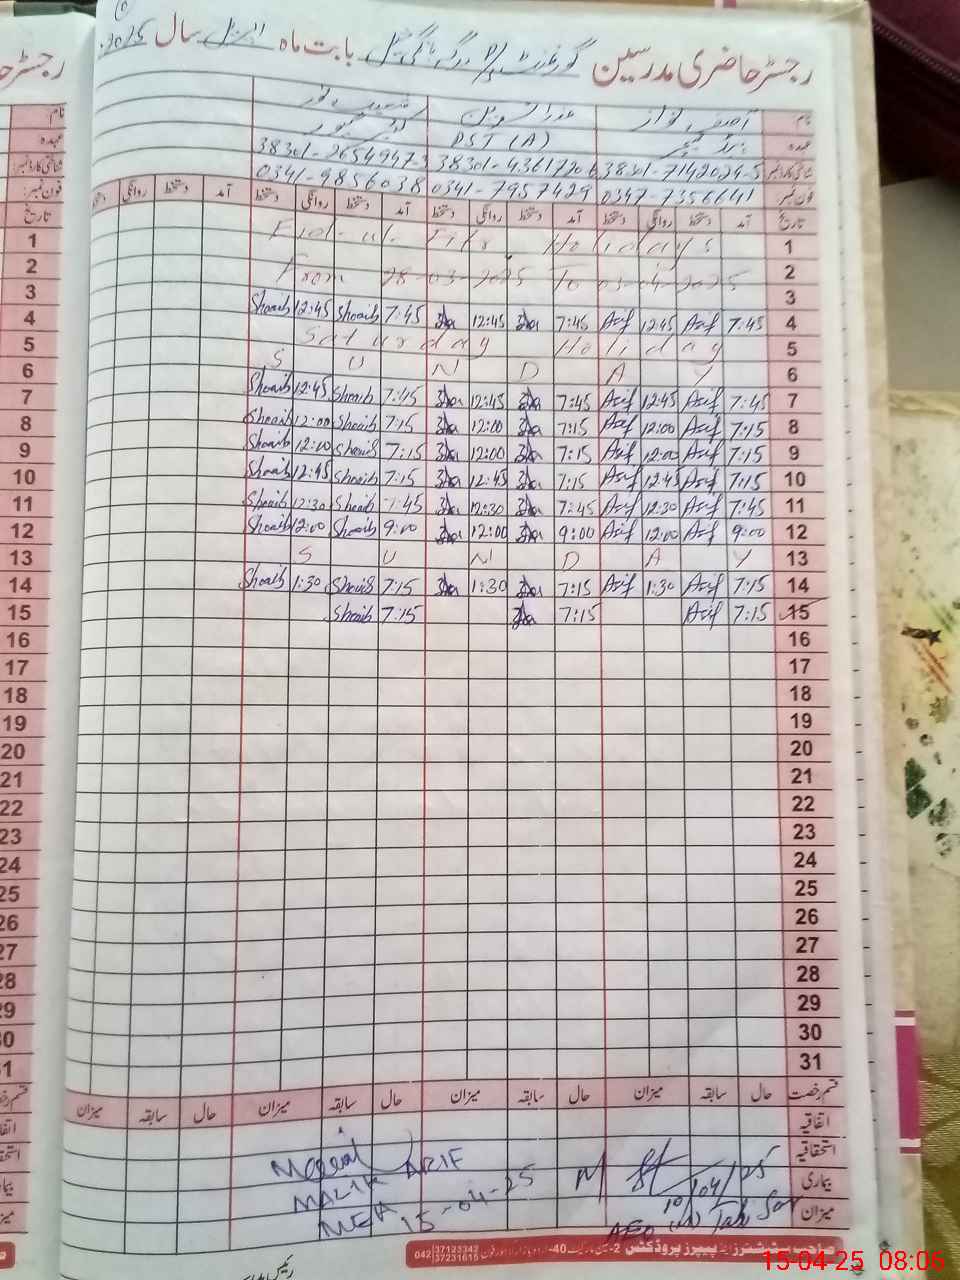 رجسٹر حاضری مدرسین گورنمنٹ P/S بابت ماہ اپریل سال 2025
نام آصف نواز
عہدہ PST (A)
شناختی کارڈ نمبر 38301-7142024-5 38301-4361720-6 38301-2654947-3
فون نمبر: 0347-7356641 0341-7957429 0341-9856038
تاریخ آمد دستخط روانگی دستخط آمد دستخط روانگی دستخط آمد دستخط روانگی دستخط آمد دستخط روانگی دستخط تاریخ
1 Eid-ul-Fitr Holidays 1
2 From 28-03-2025 To 03-04-2025 2
3 3
4 Shoaib 12:45 Shoaib 7:45 12:45 7:45 Asif 12:45 Asif 7:45 4
5 Saturday Holiday 5
6 S U N D A Y 6
7 Shoaib 12:45 Shoaib 7:45 12:45 7:45 Asif 12:45 Asif 7:45 7
8 Shoaib 12:00 Shoaib 7:15 12:00 7:15 Asif 12:00 Asif 7:15 8
9 Shoaib 12:00 Shoaib 7:15 12:00 7:15 Asif 12:00 Asif 7:15 9
10 Shoaib 12:45 Shoaib 7:15 12:45 7:15 Asif 12:45 Asif 7:15 10
11 Shoaib 12:30 Shoaib 7:45 12:30 7:45 Asif 12:30 Asif 7:45 11
12 Shoaib 12:00 Shoaib 9:00 12:00 9:00 Asif 12:00 Asif 9:00 12
13 S U N D A Y 13
14 Shoaib 1:30 Shoaib 7:15 1:30 7:15 Asif 1:30 Asif 7:15 14
15 Shoaib 7:15 7:15 Asif 7:15 15
16 16
17 17
18 18
19 19
20 20
21 21
22 22
23 23
24 24
25 25
26 26
27 27
28 28
29 29
30 30
31 31
قسم رخصت حال سابقہ میزان حال سابقہ میزان حال سابقہ میزان حال سابقہ میزان
اتفاقیہ
استحقاقیہ
بیماری
میزان
MALIK ARIF
MEA 15-04-25
10/04/25
AEO
042 37123342
37231615
15-04-25 08:06